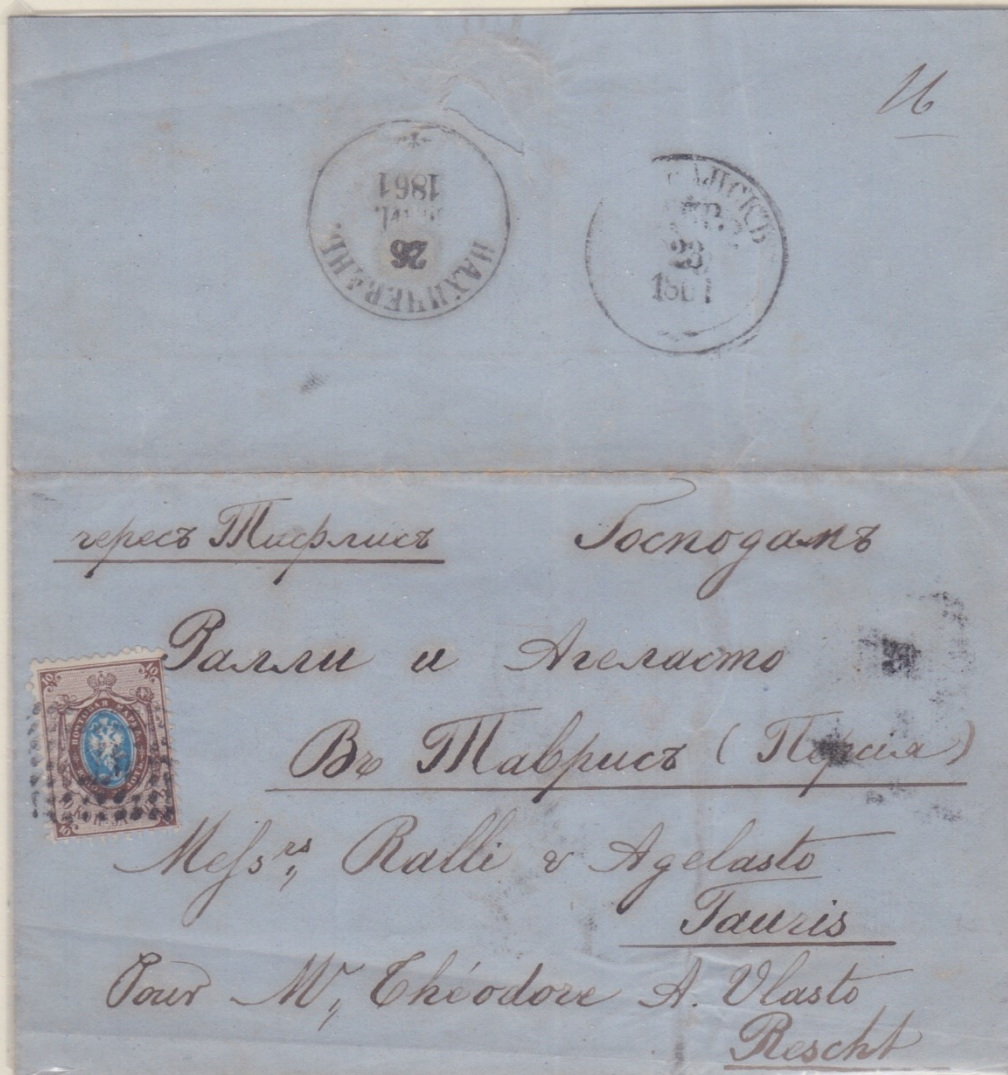 И
НАХИЧЕВАНЬ.
26
1861
23
1861
чересъ Тифлисъ
Господамъ
Ралли и Агеласто
Въ Таврисъ (Персия)
10 10
Messrs, Ralli & Agelasto
Tauris
Pour Mr, Théodore A. Vlasto
Rescht